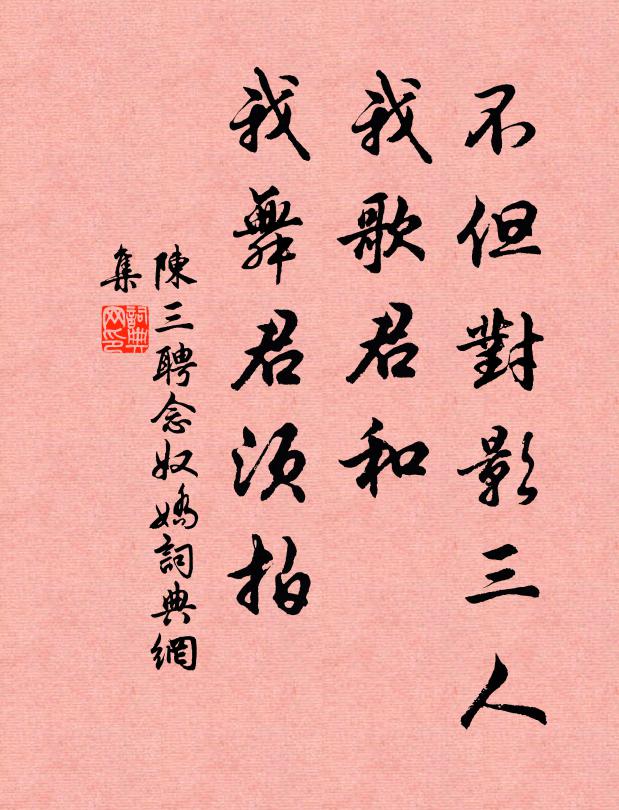 不但對影三人
我歌君和
我舞君須拍
陳三聘念奴嬌詞典網
集
詞典
网印